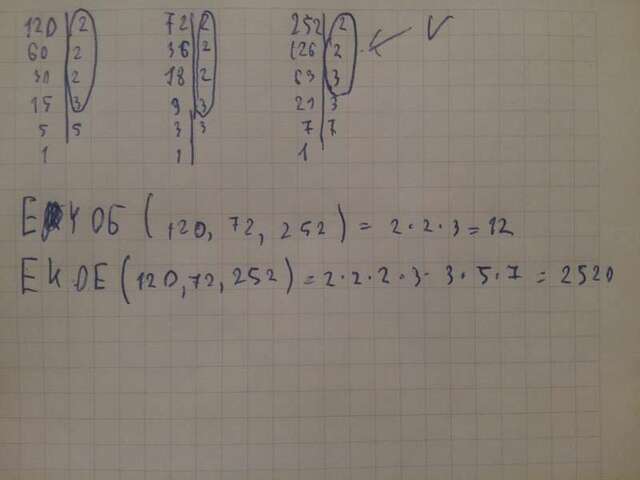 120 | 2 72 | 2 252 | 2
60 | 2 36 | 2 126 | 2
30 | 2 18 | 2 63 | 3
15 | 3 9 | 3 21 | 3
5 | 5 3 | 3 7 | 7
1 1 1
ЕКОБ (120, 72, 252) = 2·2·3=12
ЕК.ОЕ (120, 72, 252) = 2·2·2·3·3·5·7 = 2520